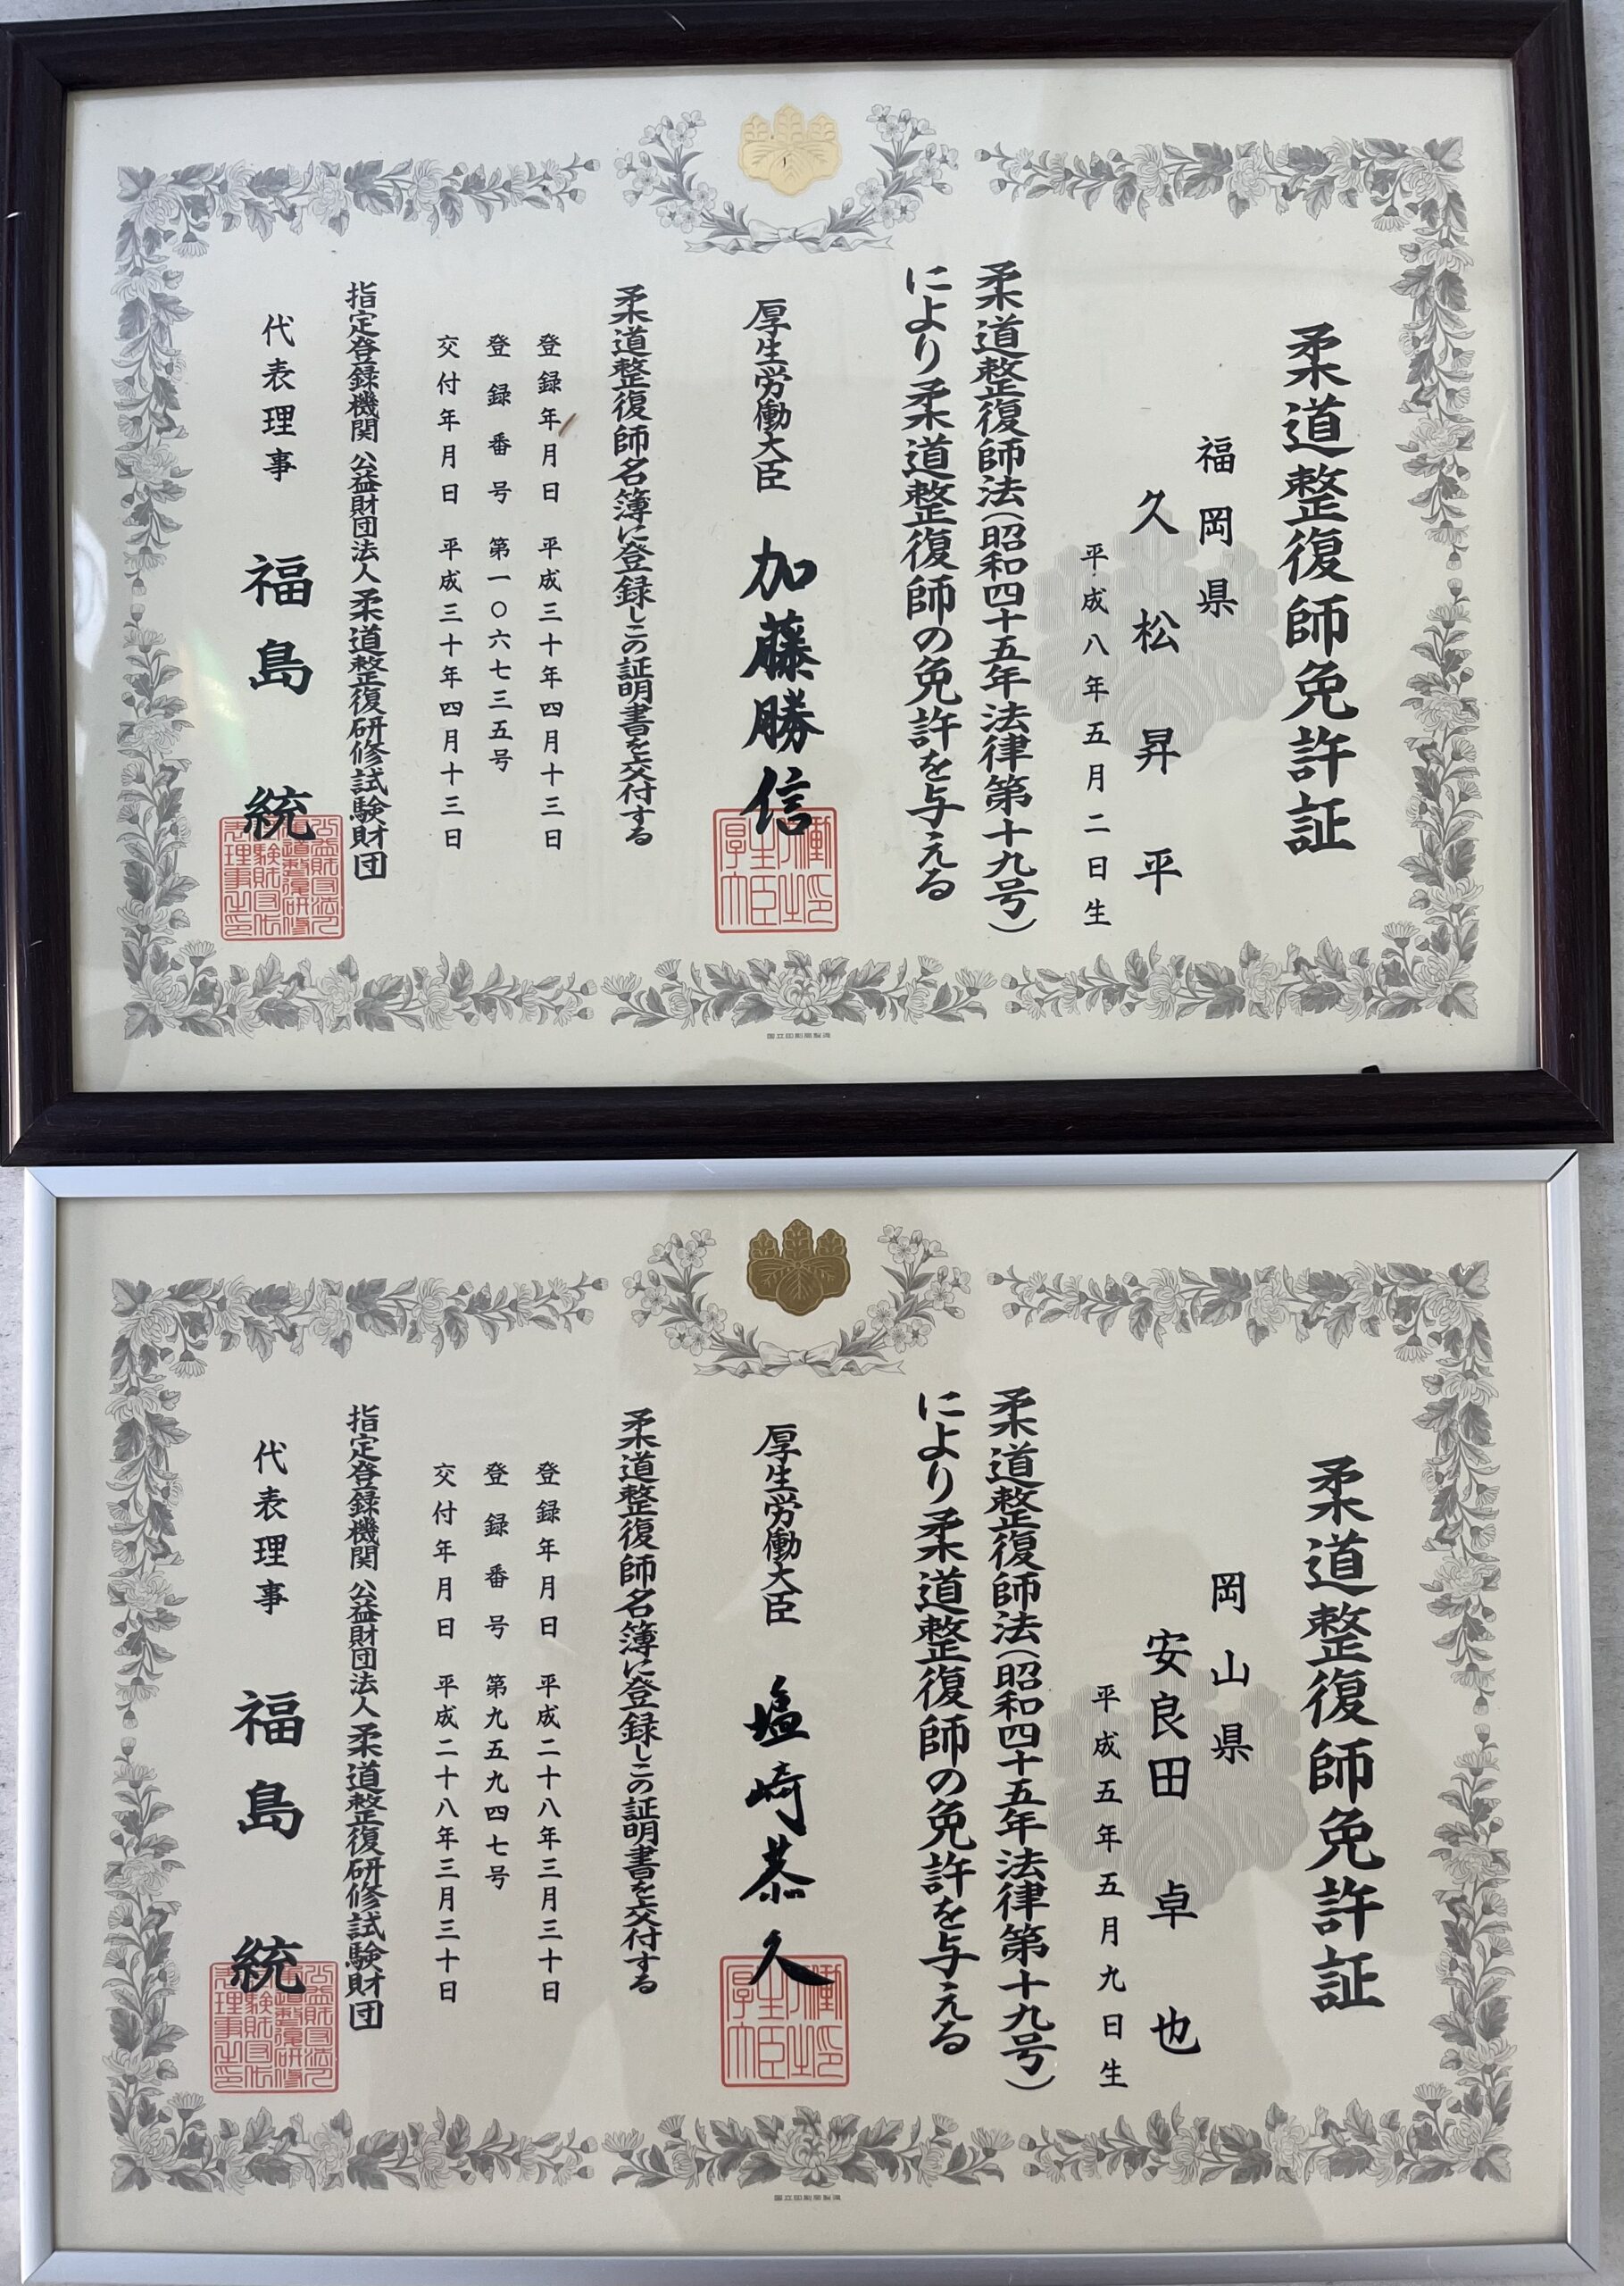 柔道整復師免許証
福岡県
久松昇平
平成八年五月二日生
柔道整復師法(昭和四十五年法律第十九号)
により柔道整復師の免許を与える
厚生労働大臣 加藤勝信
柔道整復師名簿に登録しこの証明書を交付する
登録年月日 平成三十年四月十三日
登録番号 第一〇六七三五号
交付年月日 平成三十年四月十三日
指定登録機関 公益財団法人柔道整復研修試験財団
代表理事 福島統
国立印刷局製造
柔道整復師免許証
岡山県
安良田卓也
平成五年五月九日生
柔道整復師法(昭和四十五年法律第十九号)
により柔道整復師の免許を与える
厚生労働大臣 塩崎恭久
柔道整復師名簿に登録しこの証明書を交付する
登録年月日 平成二十八年三月三十日
登録番号 第九五九四七号
交付年月日 平成二十八年三月三十日
指定登録機関 公益財団法人柔道整復研修試験財団
代表理事 福島統
国立印刷局製造